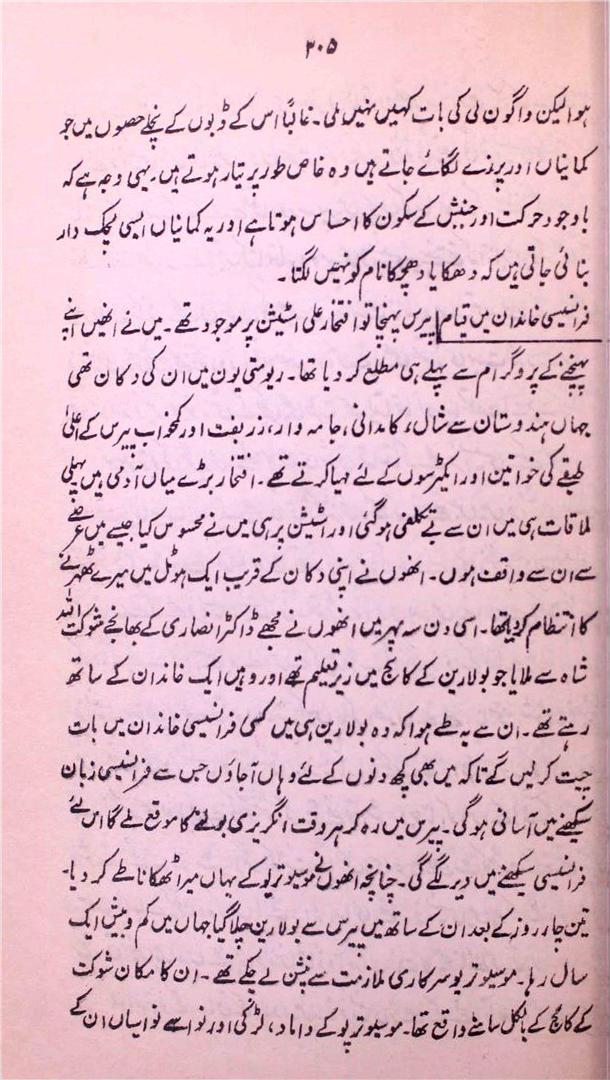 ۳۰۵
ہوا لیکن واگون لی کی بات کہیں نہیں ملی۔ غالباً اس کے ڈبوں کے نچلے حصوں میں جو
کمانیاں اور پرزے لگائے جاتے ہیں وہ خاص طور پر تیار ہوتے ہیں۔ یہی وجہ ہے کہ
باوجود حرکت اور جنبش کے سکون کا احساس ہوتا ہے اور یہ کمانیاں ایسی لچک دار
بنائی جاتی ہیں کہ دھکا یا دھچکا نام کو نہیں لگتا۔
فرانسیسی خاندان میں قیام پیرس پہنچا تو افتخار علی اسٹیشن پر موجود تھے۔ میں نے انھیں اپنے
پہنچنے کے پروگرام سے پہلے ہی مطلع کر دیا تھا۔ ریوستی یون میں ان کی دکان تھی
جہاں ہندوستان سے شال، کامدانی، جامہ وار، زربفت اور کمخواب پیرس کے اعلیٰ
طبقے کی خواتین اور ایکٹرسوں کے لئے مہیا کرتے تھے۔ افتخار بڑے میاں آدمی ہیں پہلی
ملاقات ہی میں ان سے بے تکلفی ہو گئی اور اسٹیشن پر ہی میں نے محسوس کیا جیسے میں عرصے
سے ان سے واقف ہوں۔ انھوں نے اپنی دکان کے قریب ایک ہوٹل میں میرے ٹھہرنے
کا انتظام کر دیا تھا۔ اسی دن سہ پہر میں انھوں نے مجھے ڈاکٹر انصاری کے بھانجے شوکت اللہ
شاہ سے ملایا جو بولارین کے کالج میں زیر تعلیم تھے اور وہیں ایک خاندان کے ساتھ
رہتے تھے۔ ان سے یہ طے ہوا کہ وہ بولارین ہی میں کسی فرانسیسی خاندان میں بات
چیت کر لیں گے تاکہ میں بھی کچھ دنوں کے لئے وہاں آجاؤں جس سے فرانسیسی زبان
سیکھنے میں آسانی ہوگی۔ پیرس میں رہ کر ہر وقت انگریزی بولنے کا موقع ملے گا اس لئے
فرانسیسی سیکھنے میں دیر لگے گی۔ چنانچہ انھوں نے موسیوتریو کے یہاں میرا ٹھکانا طے کر دیا۔
تین چار روز کے بعد ان کے ساتھ میں پیرس سے بولارین چلا گیا جہاں میں کم و بیش ایک
سال رہا۔ موسیوتریو سرکاری ملازمت سے پنشن لے چکے تھے۔ ان کا مکان شوکت
کے کالج کے بالکل سامنے واقع تھا۔ موسیوتریو کے داماد، لڑکی اور نواسے نواسیاں ان کے